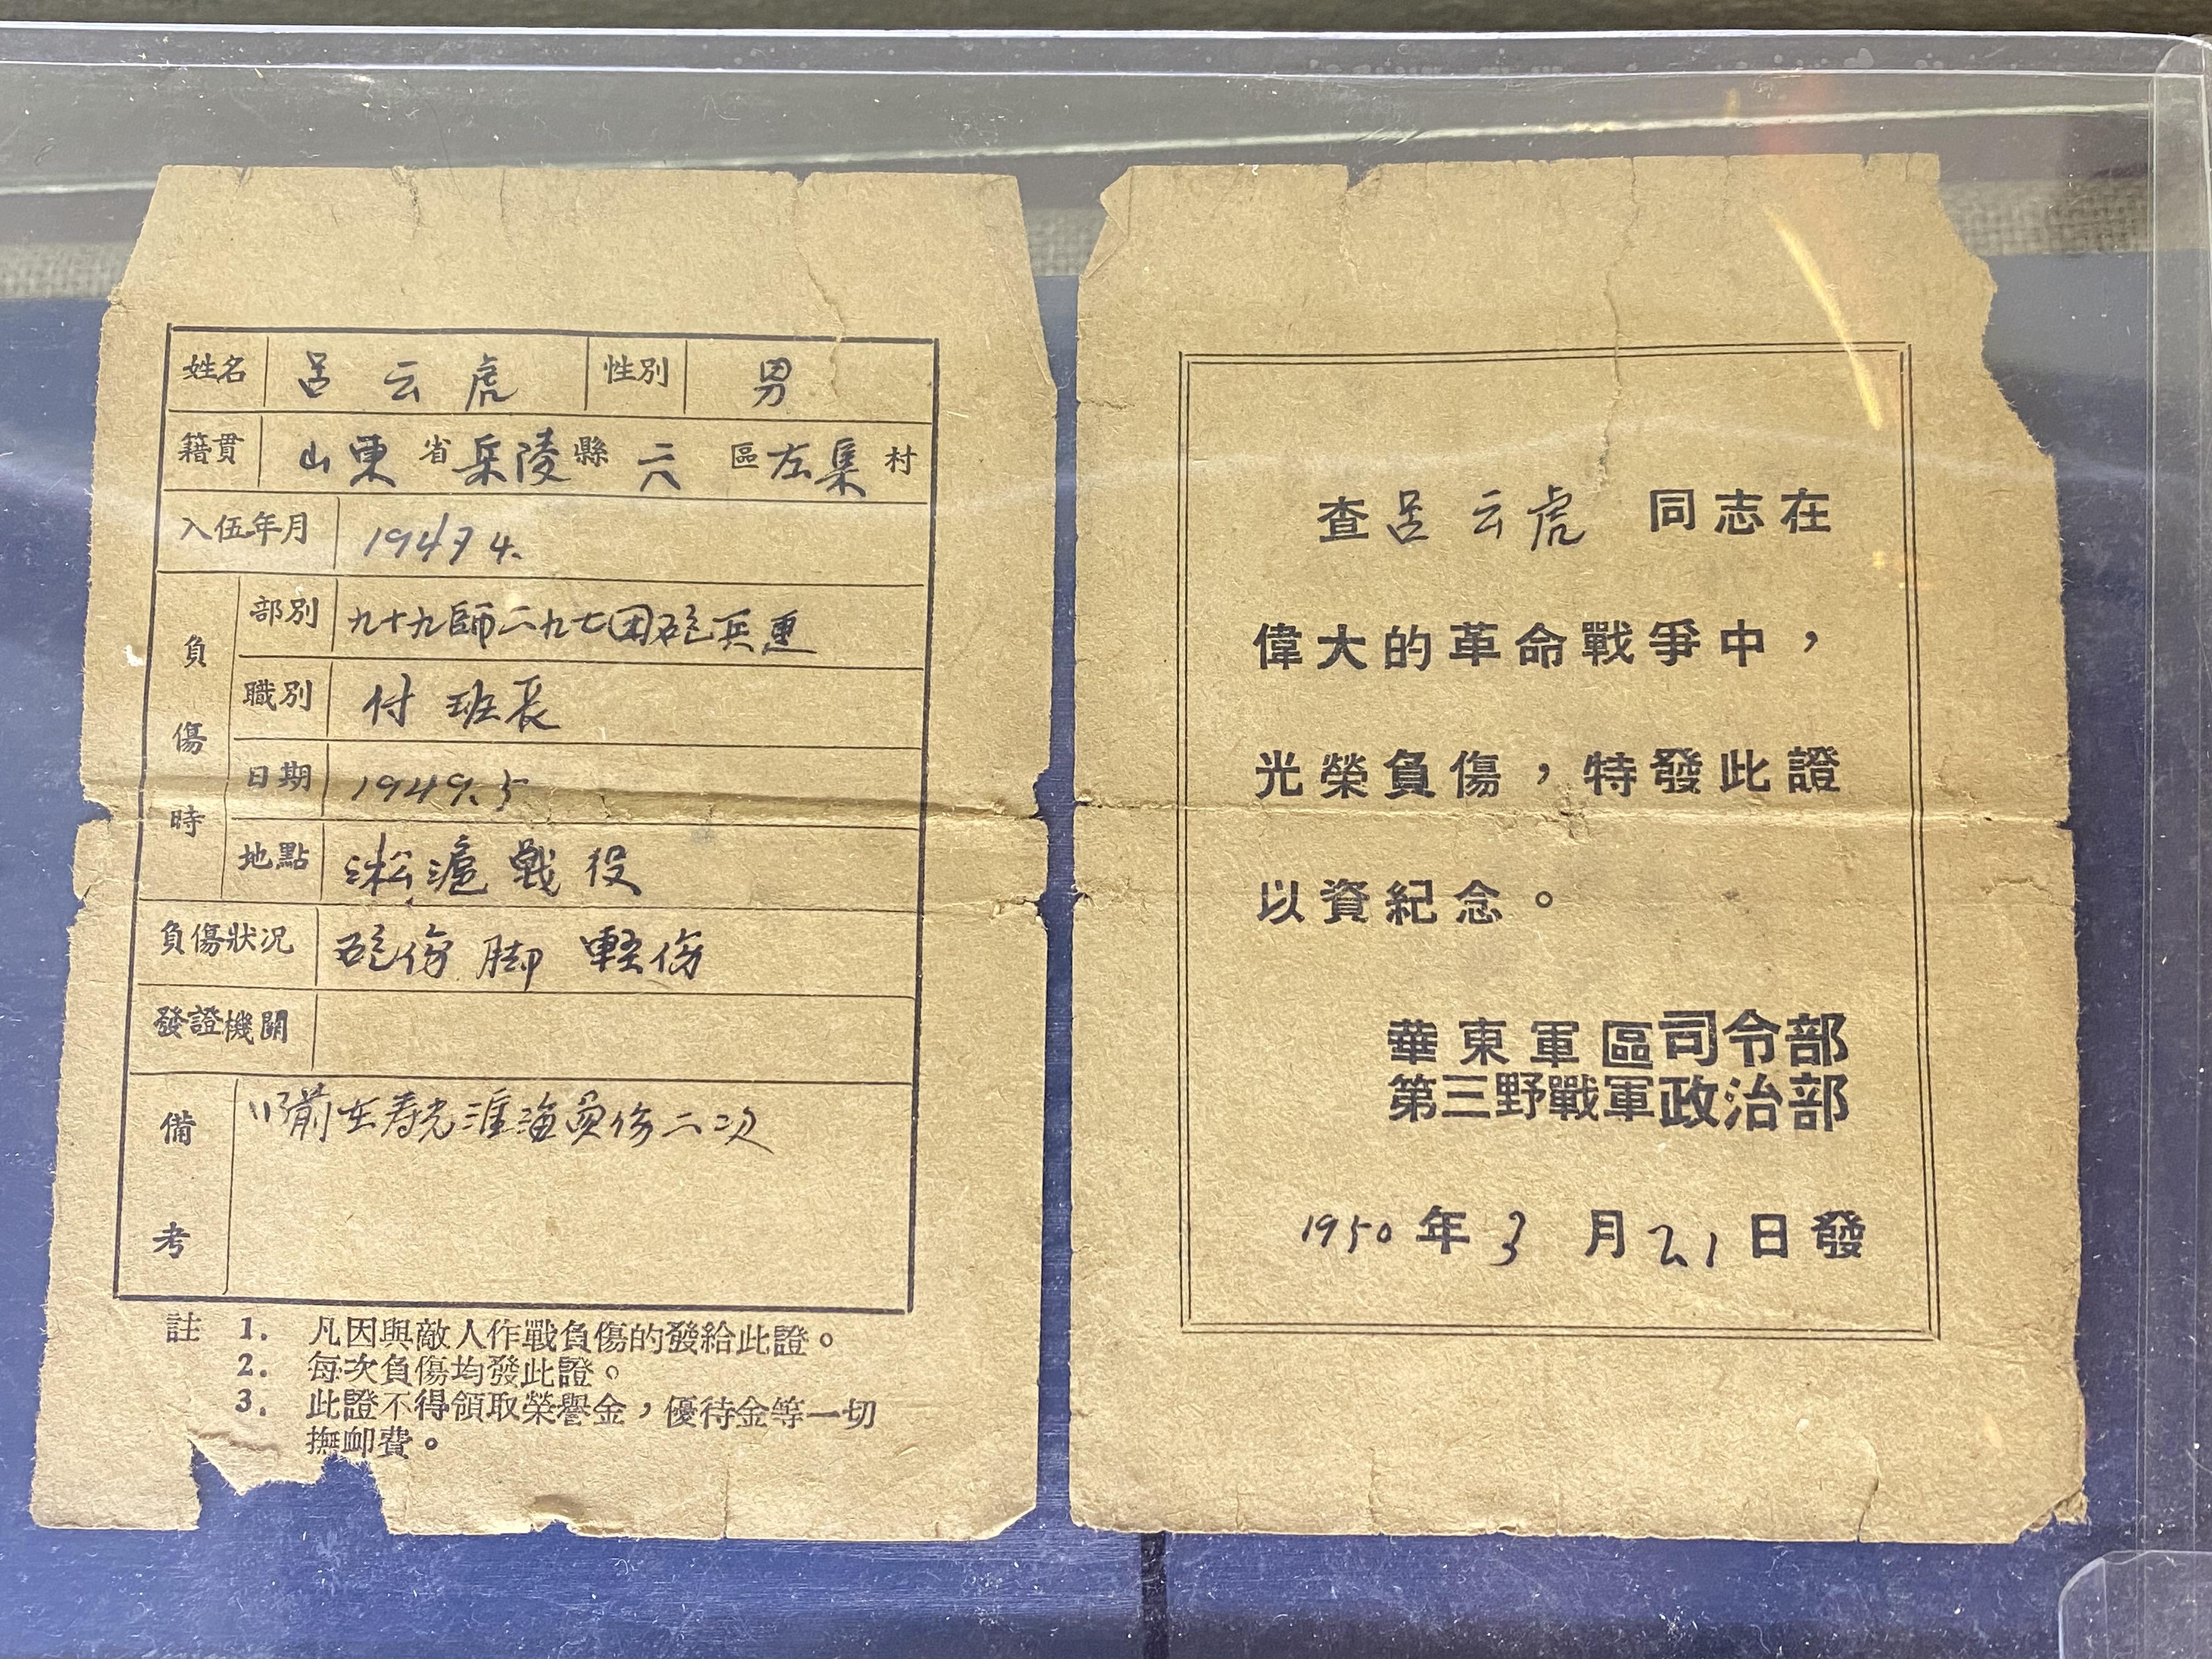 姓名 呂云虎 性別 男
籍貫 山東省乐陵縣六區左集村
入伍年月
負傷時
部別 九十九師二九七团砲兵連
職別 付班長
日期 1949.5
地點 淞滬戰役
負傷狀况 砲傷脚 輕傷
發證機關
備考 以前在寿光淮海負傷二次
註 1. 凡因與敵人作戰負傷的發給此證。
2. 每次負傷均發此證。
3. 此證不得領取榮譽金，優待金等一切
撫卹費。
查呂云虎 同志在
偉大的革命戰爭中，
光榮負傷，特發此證
以資紀念。
華東軍區司令部
第三野戰軍政治部
1950年3月21日發